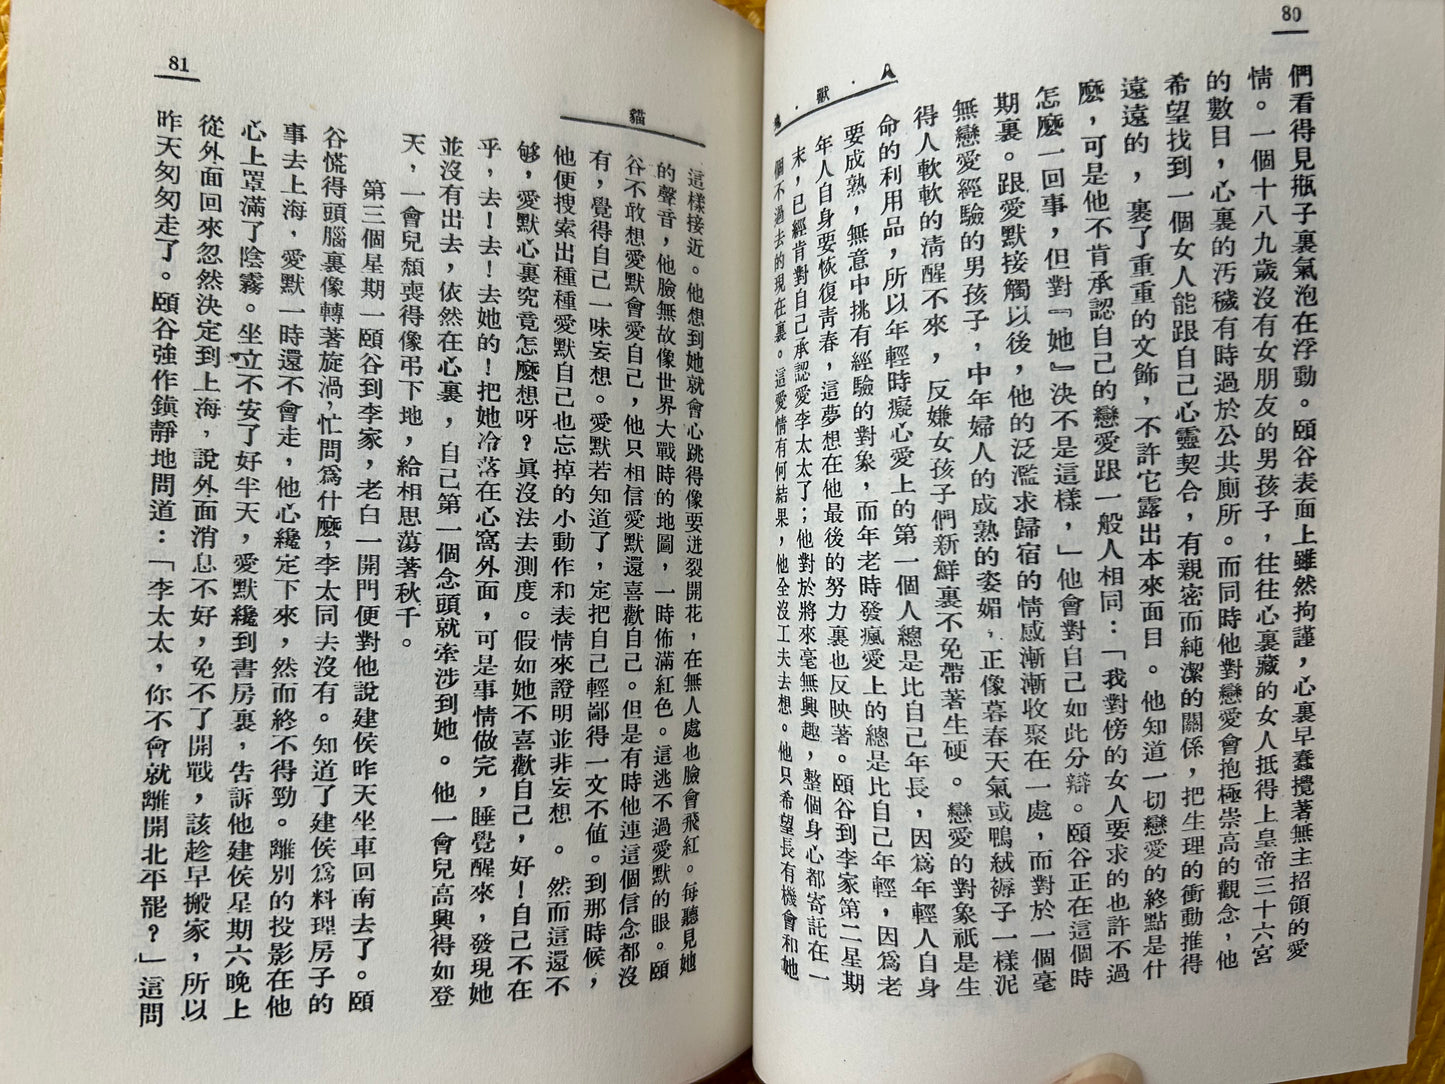 80
人．獸．鬼
們看得見瓶子裏氣泡在浮動。頤谷表面上雖然拘謹，心裏早蠢攪著無主招領的愛
情。一個十八九歲沒有女朋友的男孩子，往往心裏藏的女人抵得上皇帝三十六宮
的數目，心裏的汚穢有時過於公共廁所。而同時他對戀愛會抱極崇高的觀念，他
希望找到一個女人能跟自己心靈契合，有親密而純潔的關係，把生理的衝動推得
遠遠的，裹了重重的文飾，不許它露出本來面目。他知道一切戀愛的終點是什
麼，可是他不肯承認自己的戀愛跟一般人相同：「我對傍的女人要求的也許不過
怎麼一回事，但對『她』決不是這樣，」他會對自己如此分辯。頤谷正在這個時
期裏。跟愛默接觸以後，他的泛濫求歸宿的情感漸漸收聚在一處，而對於一個毫
無戀愛經驗的男孩子，中年婦人的成熟的姿媚，正像暮春天氣或鴨絨褥子一樣泥
得人軟軟的淸醒不來，反嫌女孩子們新鮮裏不免帶著生硬。戀愛的對象祇是生
命的利用品，所以年輕時癡心愛上的第一個人總是比自己年長，因爲年輕人自身
要成熟，無意中挑有經驗的對象，而年老時發瘋愛上的總是比自己年輕，因爲老
年人自身要恢復靑春，這夢想在他最後的努力裏也反映著。頤谷到李家第二星期
末，已經肯對自己承認愛李太太了；他對於將來毫無興趣，整個身心都寄託在一
個不過去的現在裏。這愛情有何結果，他全沒工夫去想。他只希望長有機會和她
貓
81
這樣接近。他想到她就會心跳得像要迸裂開花，在無人處也臉會飛紅。每聽見她
的聲音，他臉無故像世界大戰時的地圖，一時佈滿紅色。這逃不過愛默的眼。頤
谷不敢想愛默會愛自己，他只相信愛默還喜歡自己。但是有時他連這個信念都沒
有，覺得自己一味妄想。愛默若知道了，定把自己輕鄙得一文不值。到那時候，
他便搜索出種種愛默自己也忘掉的小動作和表情來證明並非妄想。然而這還不
够，愛默心裏究竟怎麼想呀？眞沒法去測度。假如她不喜歡自己，好！自己不在
乎，去！去！去她的！把她冷落在心窩外面，可是事情做完，睡覺醒來，發現她
並沒有出去，依然在心裏，自己第一個念頭就牽涉到她。他一會兒高興得如登
天，一會兒頹喪得像弔下地，給相思蕩著秋千。
第三個星期一頤谷到李家，老白一開門便對他說建侯昨天坐車回南去了。頤
谷慌得頭腦裏像轉著旋渦，忙問爲什麼，李太同去沒有。知道了建侯爲料理房子的
事去上海，愛默一時還不會走，他心纔定下來，然而終不得勁。離別的投影在他
心上罩滿了陰霧。坐立不安了好半天，愛默纔到書房裏，告訴他建侯星期六晚上
從外面回來忽然決定到上海，說外面消息不好，免不了開戰，該趁早搬家，所以
昨天匆匆走了。頤谷強作鎭靜地問道：「李太太，你不會就離開北平罷？」這問